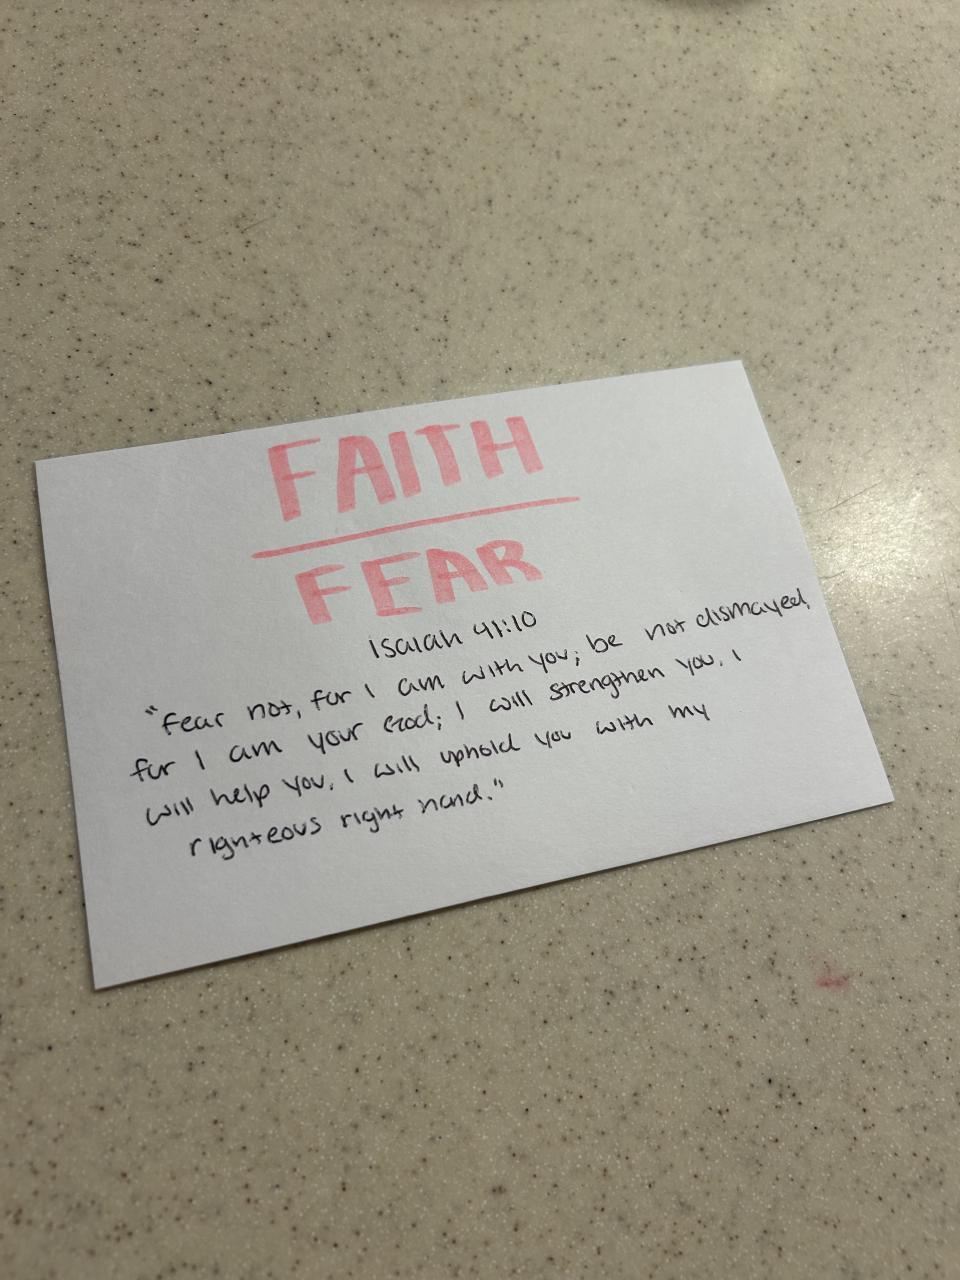 FAITH
FEAR
isaiah 41:10
"fear not, for I am with you; be not dismayed,
for I am your God; I will strengthen you, I
will help you, I will uphold you with my
righteous right hand."